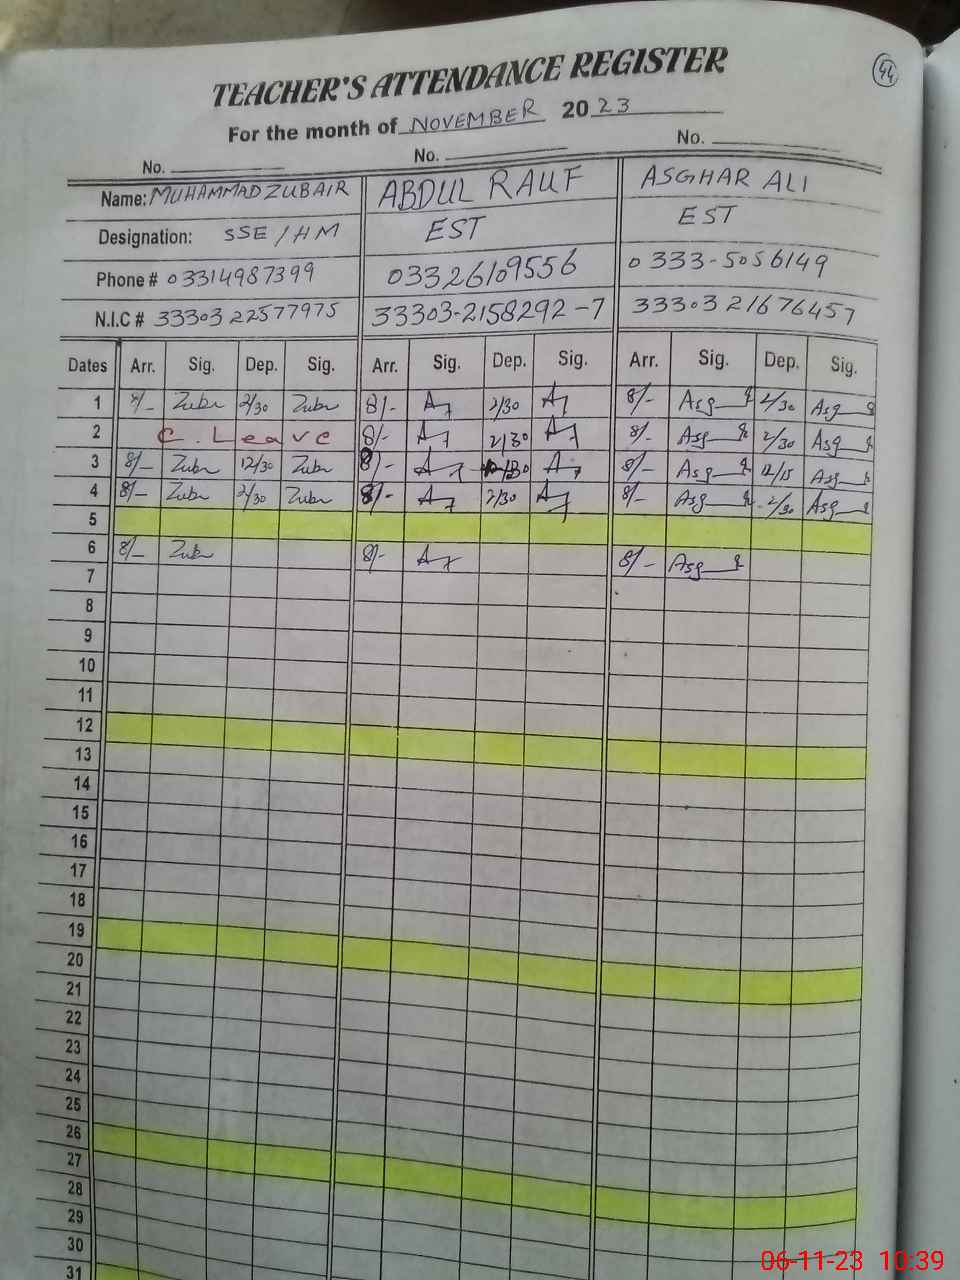 TEACHER'S ATTENDANCE REGISTER
44
For the month of NOVEMBER 2023
No. No. No.
Name: MUHAMMAD ZUBAIR ABDUL RAUF ASGHAR ALI
Designation: SSE/HM EST EST
Phone # 03314987399 03326109556 0333-5056149
N.I.C # 33303 22577975 33303-2158292-7 33303 21676457
Dates Arr. Sig. Dep. Sig. Arr. Sig. Dep. Sig. Arr. Sig. Dep. Sig.
1 8/- Zubr 2/30 Zubr 8/- 2/30 8/- Asg 2/30 Asg
2 C. Leave 8/- 2/30 8/- Asg 2/30 Asg
3 8/- Zubr 12/30 Zubr 8/- 8/- Asg 12/15 Asg
4 8/- Zubr 2/30 Zubr 8/- 2/30 8/- Asg 2/30 Asg
5
6 8/- Zubr 8/- 8/- Asg
7
8
9
10
11
12
13
14
15
16
17
18
19
20
21
22
23
24
25
26
27
28
29
30
31
06-11-23 10:39